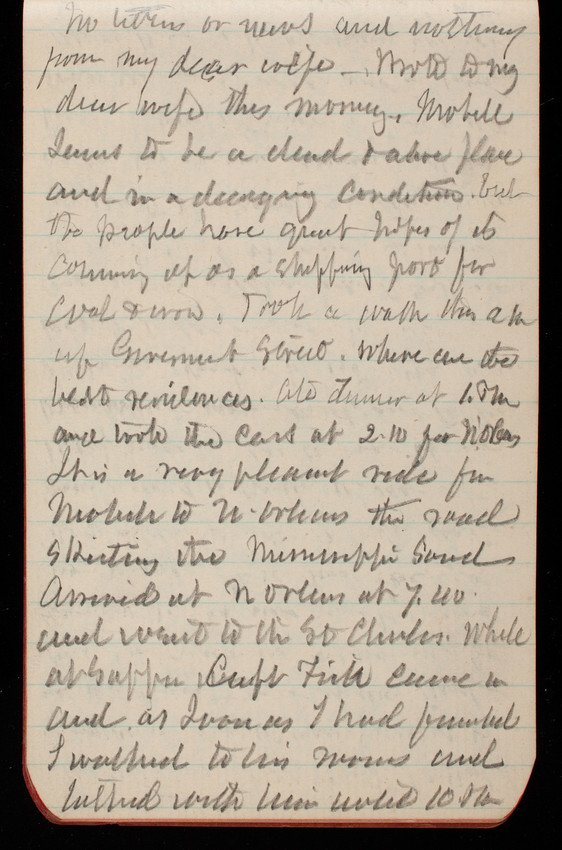 No letters or news and nothing
from my dear wife -. Wrote to my
dear wife this morning. Mobile
seems to be a dead & alive place
and in a decaying condition. but
the people have great hopes of its
coming up as a shipping port for
coal & iron. Took a walk this am
up Government Street. where are the
best residences. ate dinner at 1. Pm
and took the cars at 2.10 for N Orleans
It is a very pleasant ride from
Mobile to N. Orleans the road
skirting the Mississippi Sound
Arrived at N Orleans at 7.40.
and went to the St Charles. While
at Supper Capt came in
and as soon as I had finished
I walked to his rooms and
talked with him until 10 Pm